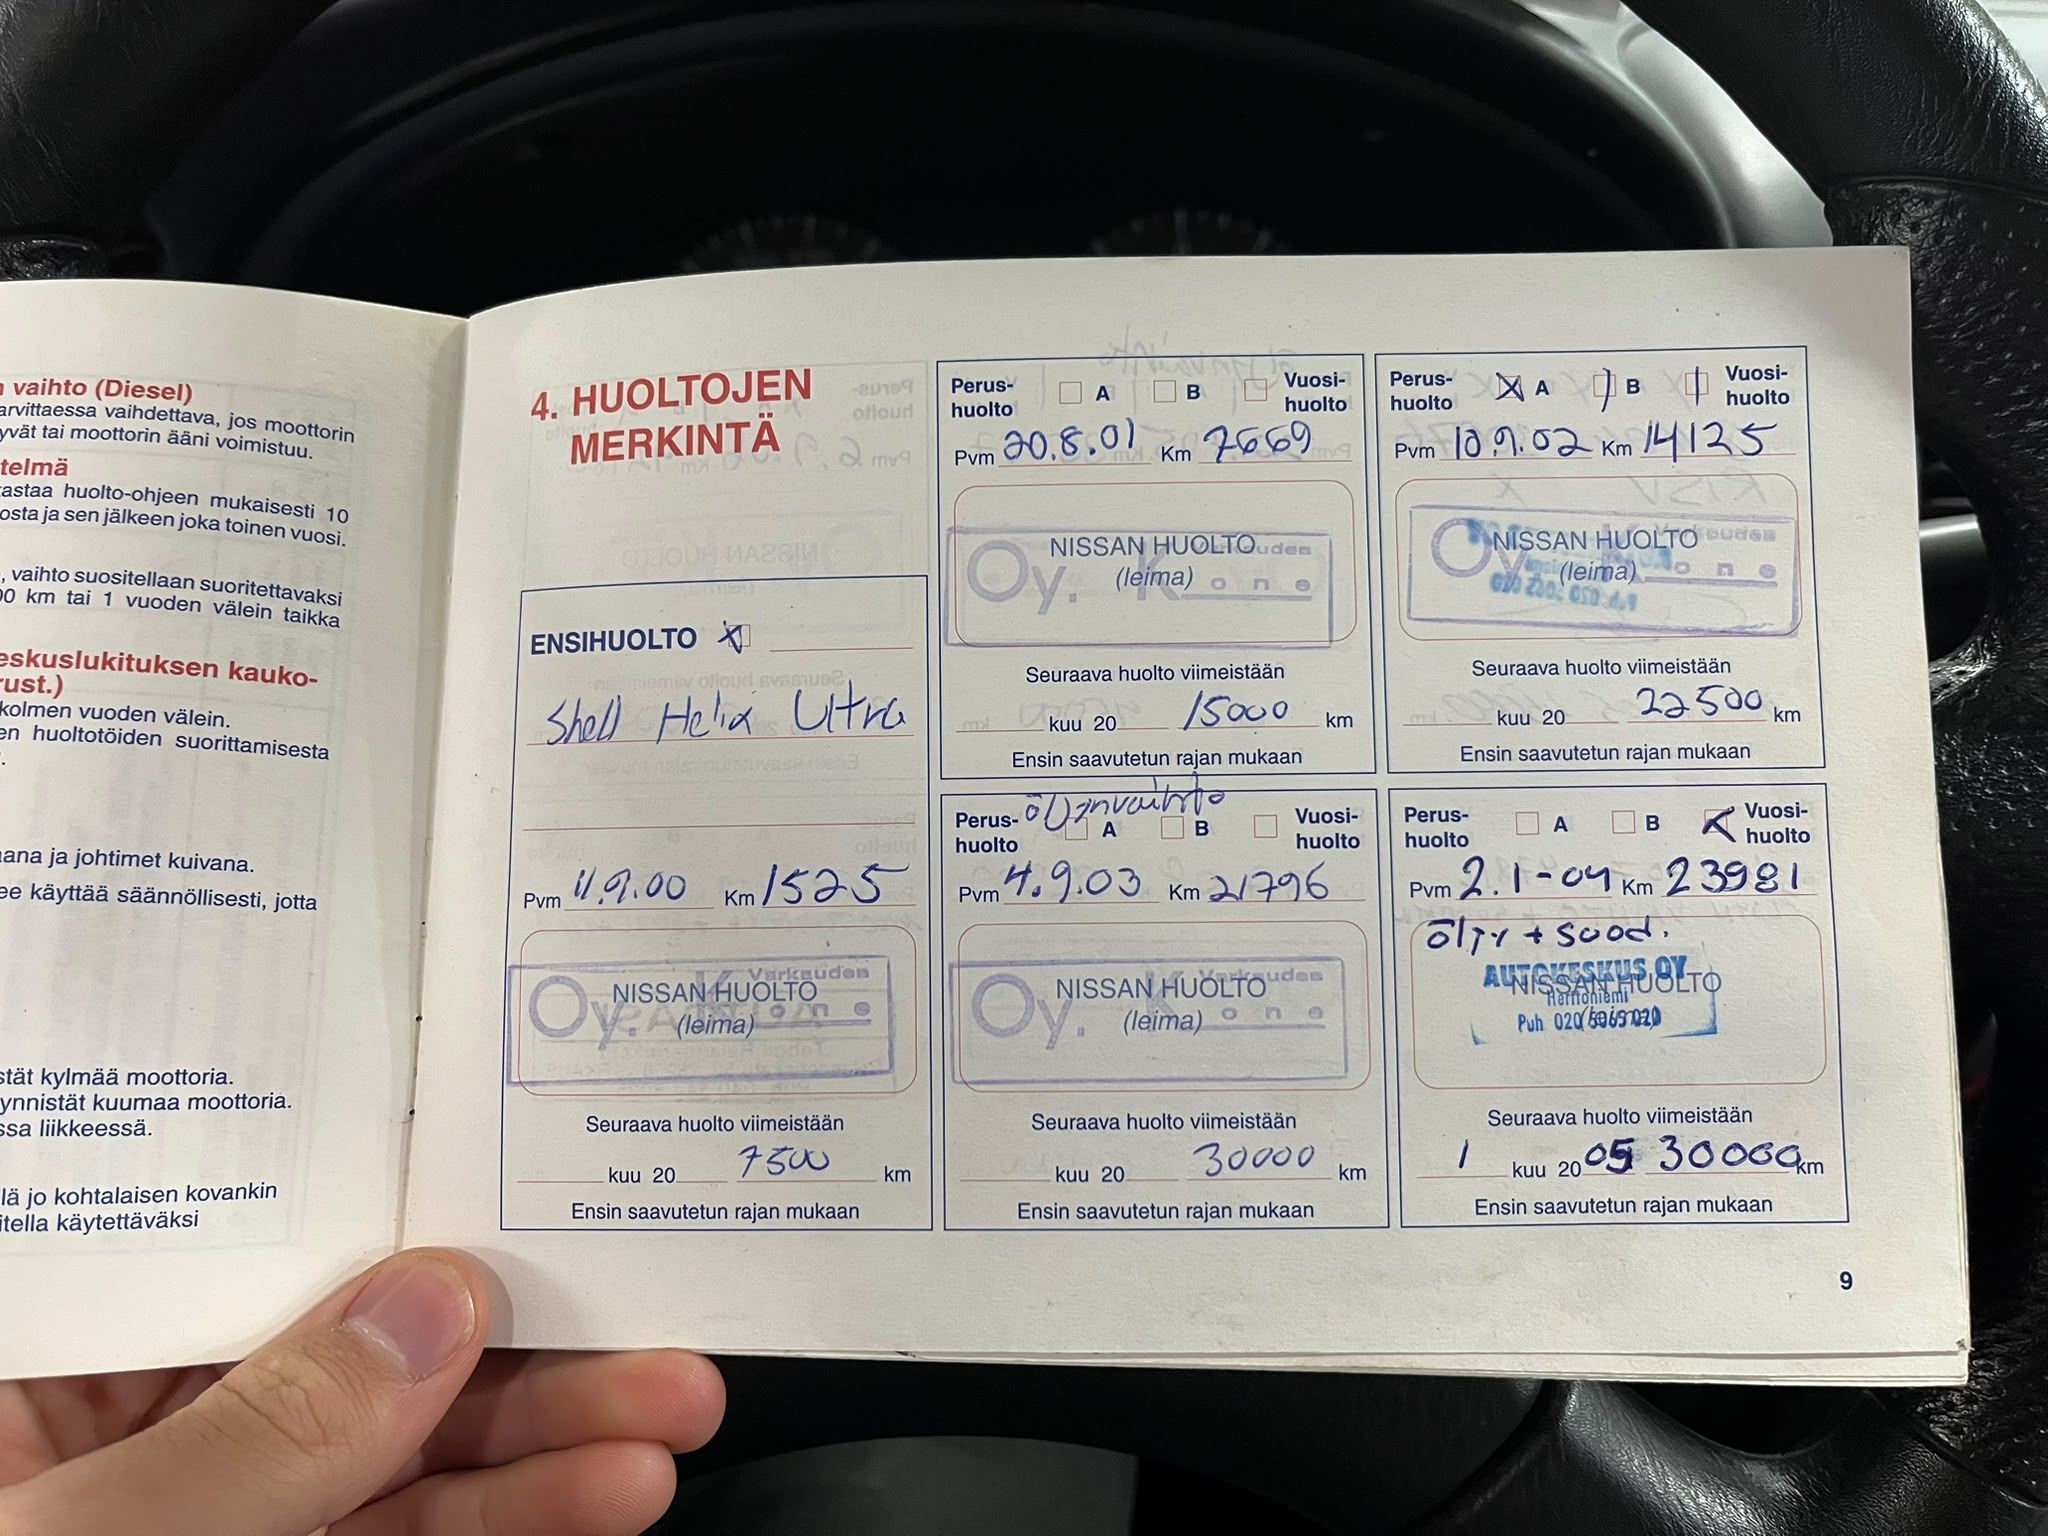 n vaihto (Diesel)
arvittaessa vaihdettava, jos moottorin
yvät tai moottorin ääni voimistuu.
telmä
tastaa huolto-ohjeen mukaisesti 10
osta ja sen jälkeen joka toinen vuosi.
, vaihto suositellaan suoritettavaksi
00 km tai 1 vuoden välein taikka
eskuslukituksen kauko-
rust.)
kolmen vuoden välein.
en huoltotöiden suorittamisesta
aana ja johtimet kuivana.
ee käyttää säännöllisesti, jotta
stät kylmää moottoria.
ynnistät kuumaa moottoria.
ssa liikkeessä.
lä jo kohtalaisen kovankin
itella käytettäväksi
4. HUOLTOJEN
MERKINTÄ
ENSIHUOLTO
Shell Helix Ultra
Pvm 11.9.00 Km 1525
Oy. Varkauden Kone
NISSAN HUOLTO
(leima)
Seuraava huolto viimeistään
kuu 20 7500 km
Ensin saavutetun rajan mukaan
Perus- A B Vuosi-
huolto huolto
Pvm 20.8.01 Km 7669
Oy. Varkauden Kone
NISSAN HUOLTO
(leima)
Seuraava huolto viimeistään
kuu 20 15000 km
Ensin saavutetun rajan mukaan
Perus- A B Vuosi-
huolto huolto
Pvm 10.9.02 Km 14125
Oy. Varkauden Kone
NISSAN HUOLTO
(leima)
Seuraava huolto viimeistään
kuu 20 22500 km
Ensin saavutetun rajan mukaan
öljynvaihto
Perus- A B Vuosi-
huolto huolto
Pvm 4.9.03 Km 21796
Oy. Varkauden Kone
NISSAN HUOLTO
(leima)
Seuraava huolto viimeistään
kuu 20 30000 km
Ensin saavutetun rajan mukaan
Perus- A B Vuosi-
huolto huolto
Pvm 2.1-04 Km 23981
öljy + suod.
AUTOKESKUS OY
NISSAN HUOLTO
Herttoniemi
(leima)
Puh 020 5065 020
Seuraava huolto viimeistään
1 kuu 2005 30000 km
Ensin saavutetun rajan mukaan
9